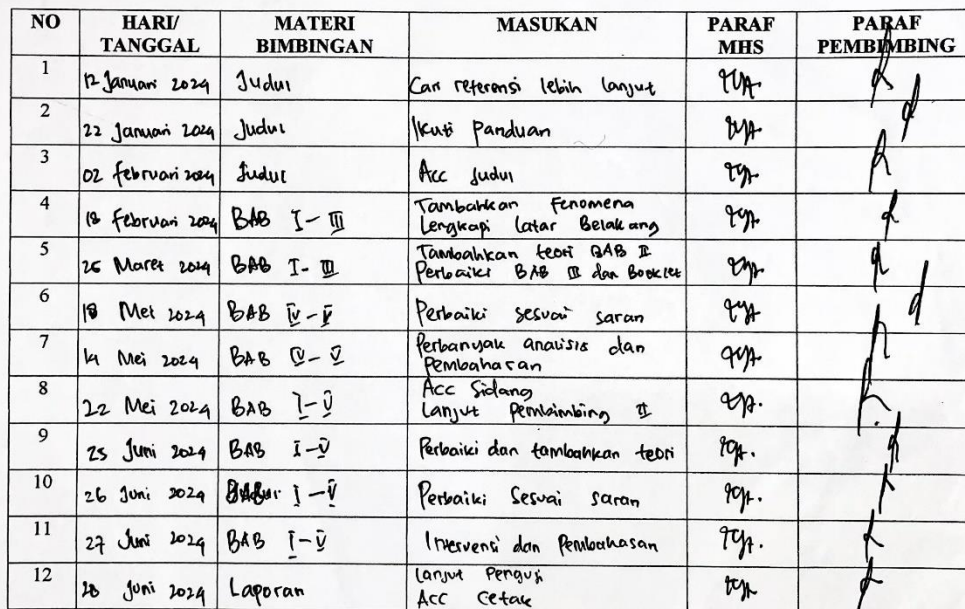 NO HARI/ TANGGAL MATERI BIMBINGAN MASUKAN PARAF MHS PARAF PEMBIMBING
1 12 Januari 2024 Judul Cari referensi lebih lanjut
2 22 Januari 2024 Judul Ikuti Panduan
3 02 februari 2024 Judul Acc Judul
4 18 Februari 2024 BAB I - III Tambahkan Fenomena
Lengkapi Latar Belakang
5 25 Maret 2024 BAB I - III Tambahkan teori BAB II
Perbaiki BAB III dan Booklet
6 Mei 2024 BAB IV - V Perbaiki sesuai saran
7 14 Mei 2024 BAB IV - V Perbanyak analisis dan
Pembahasan
8 22 Mei 2024 BAB I - V Acc Sidang
Lanjut Pembimbing II
9 25 Juni 2024 BAB I - V Perbaiki dan tambahkan teori
10 26 Juni 2024 I - V Perbaiki Sesuai saran
11 27 Juni 2024 BAB I - V Intervensi dan Pembahasan
12 28 Juni 2024 Laporan Lanjut Penguji
Acc Cetak